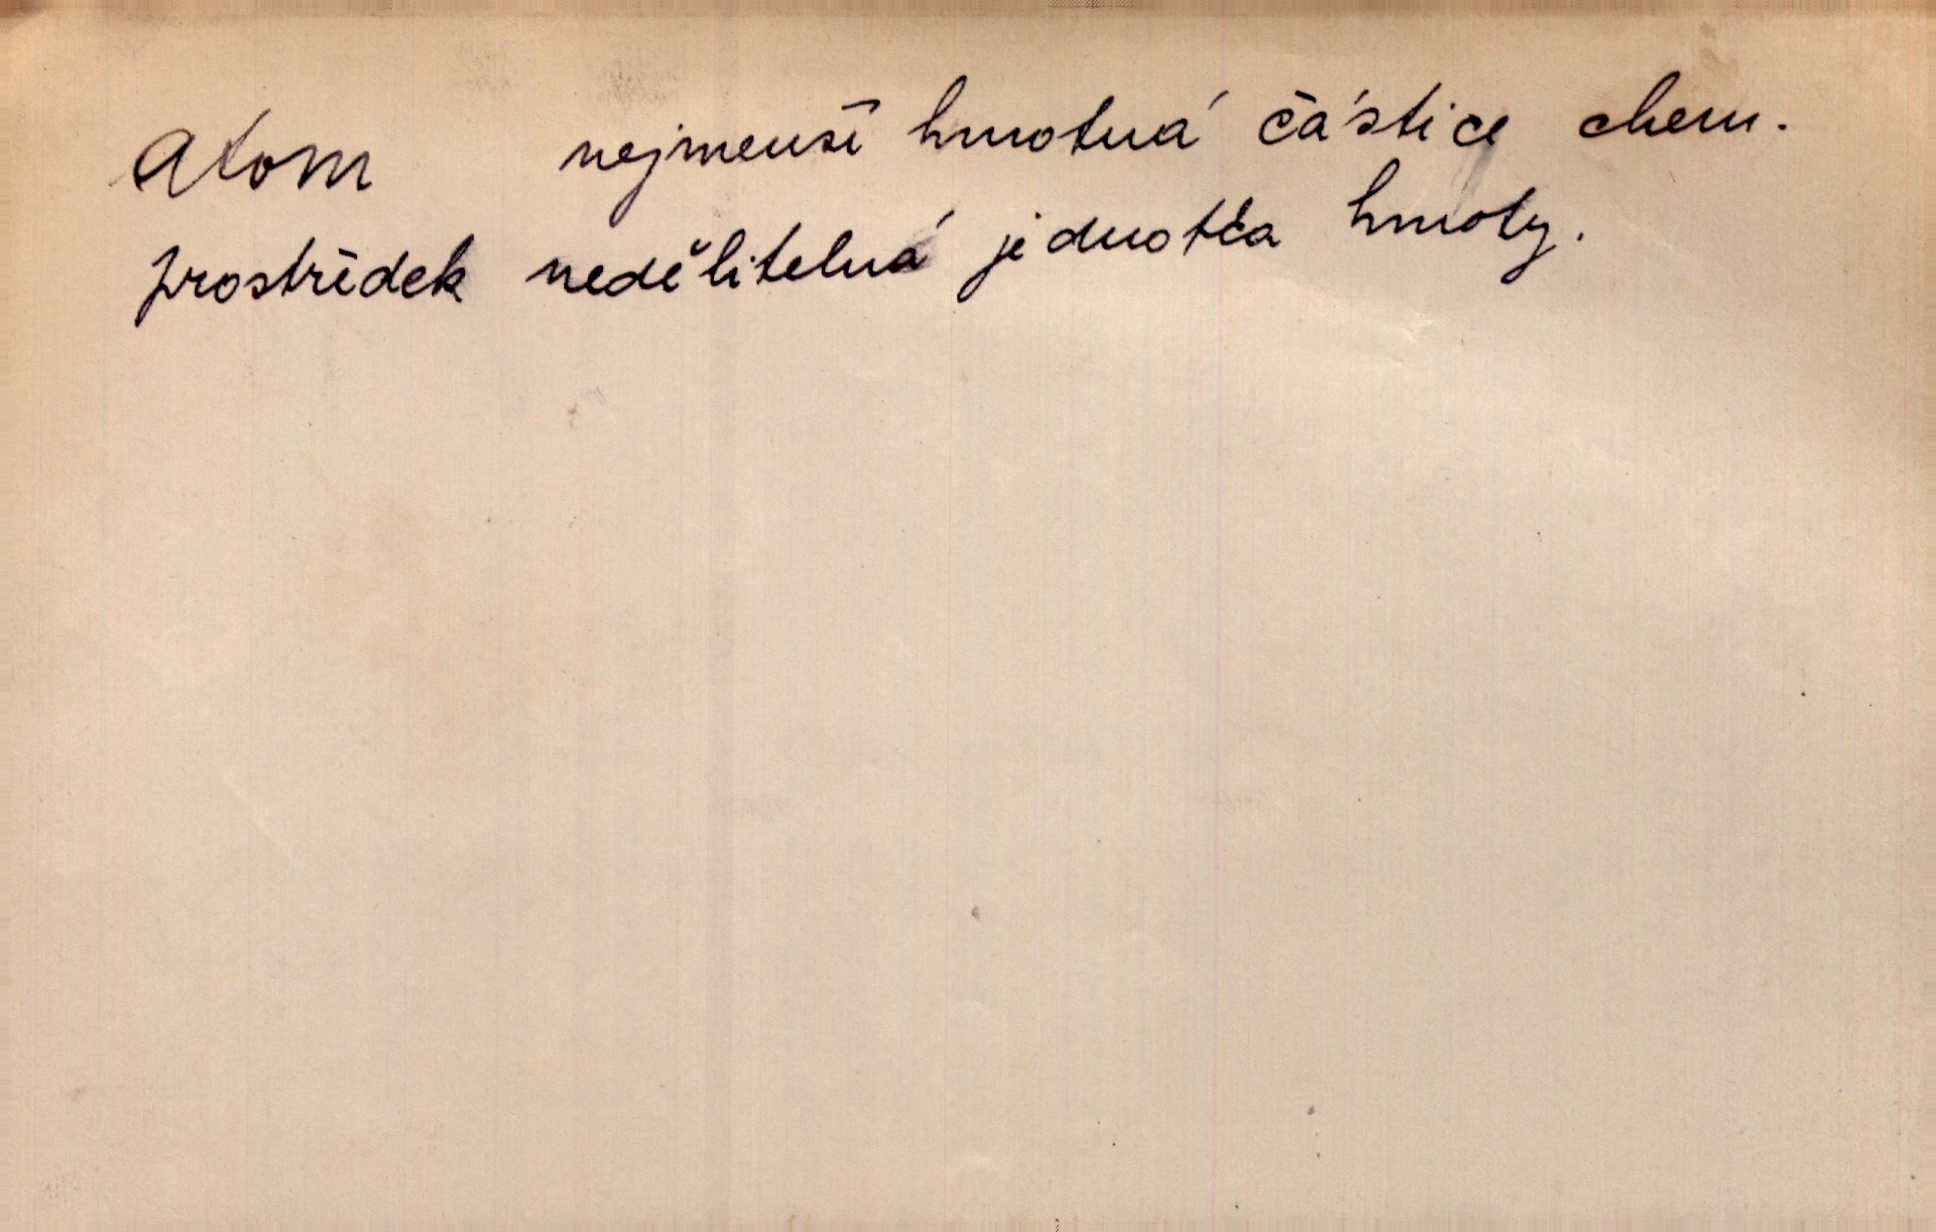 Atom nejmenší hmotná částice chem.
prostředek nedělitelná jednotka hmoty.